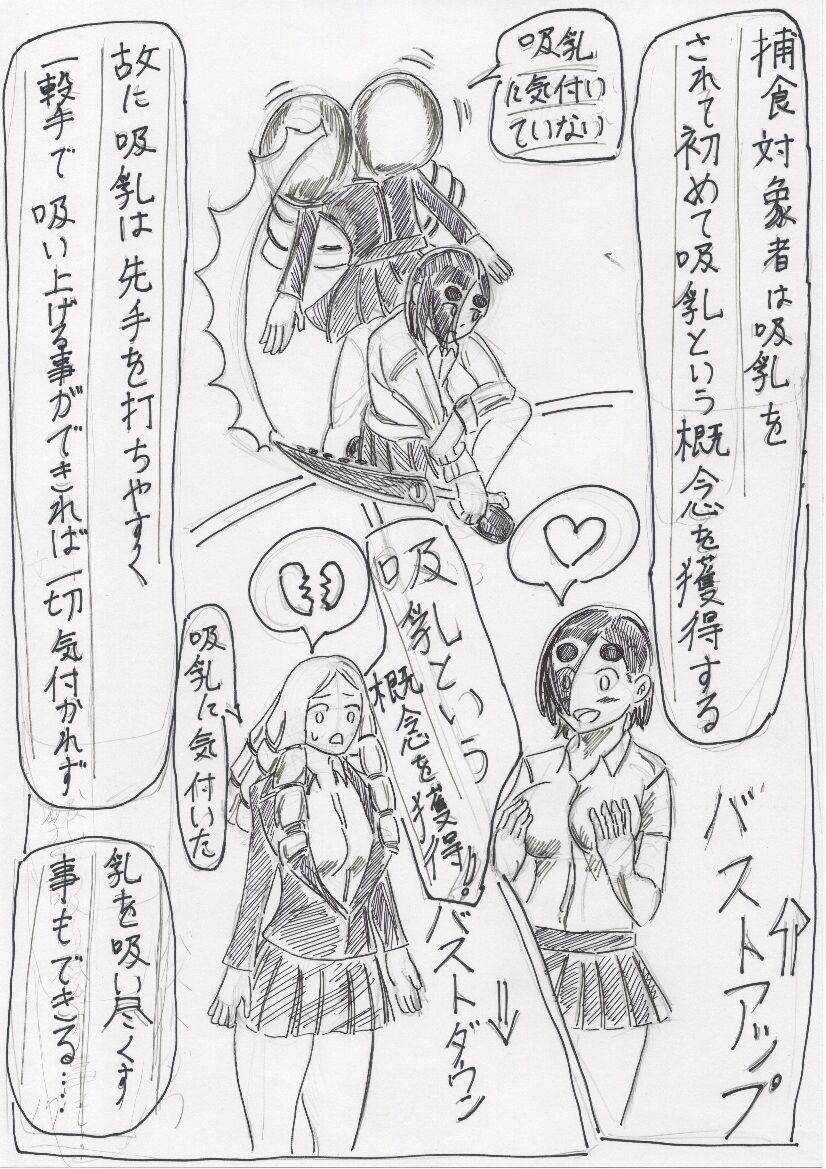 捕食対象者は吸乳を
されて初めて吸乳という概念を獲得する
吸乳
に気付い
ていない
故に吸乳は先手を打ちやすく
一撃手で吸い上げる事ができれば一切気付かれず
バストアップ
吸乳という
概念を獲得!!
吸乳に気付いた
バストダウン
乳を吸い尽くす
事もできる……